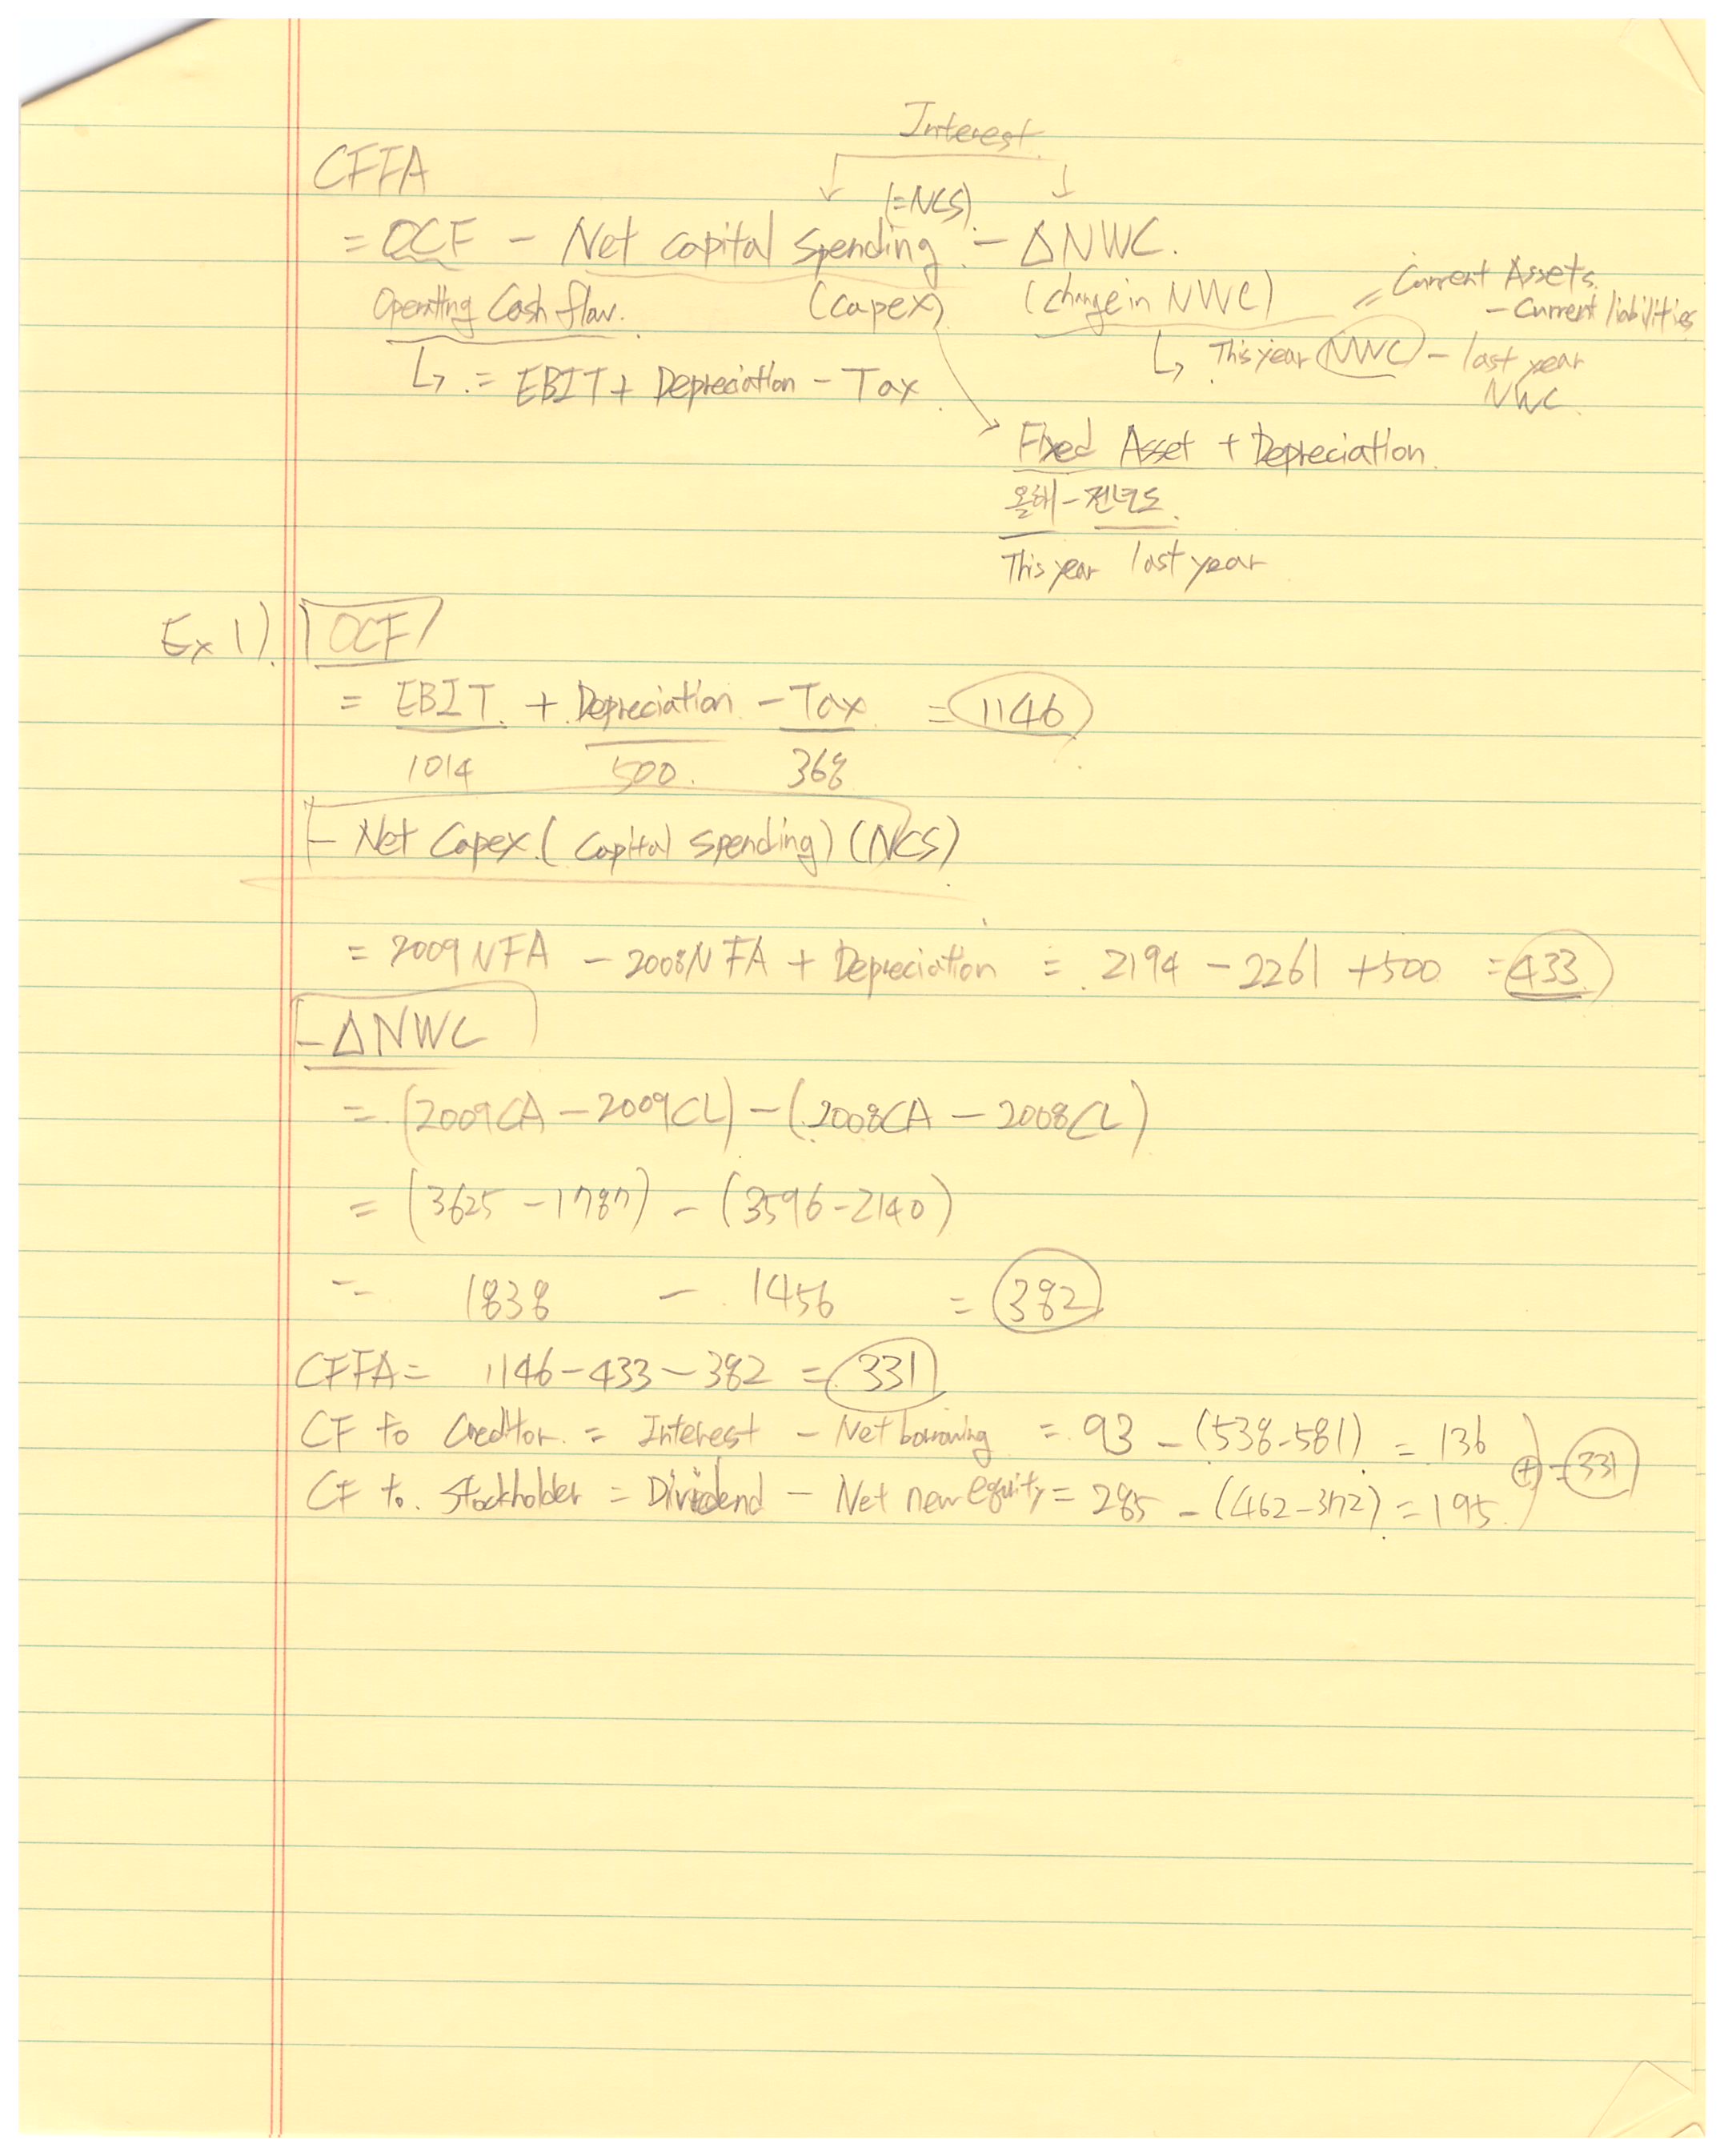 Interest
CFFA
(=NCS)
= OCF - Net capital spending - ΔNWC.
Operating Cash flow. (Capex) (change in NWC) = Current Assets. - Current liabilities
↳ This year NWC - last year NWC
↳ = EBIT + Depreciation - Tax
Fixed Asset + Depreciation
올해 - 전년도
This year last year
Ex 1) OCF
= EBIT + Depreciation - Tax = 1146
1014 500 368
- Net Capex (Capital spending) (NCS)
= 2009 NFA - 2008 NFA + Depreciation = 2194 - 2261 + 500 = 433
- ΔNWC
= (2009CA - 2009CL) - (2008CA - 2008CL)
= (3625 - 1787) - (3596 - 2140)
= 1838 - 1456 = 382
CFFA = 1146 - 433 - 382 = 331
CF to Creditor = Interest - Net borrowing = 93 - (538-581) = 136
⊕ = 331
CF to Stockholder = Dividend - Net new equity = 285 - (462-372) = 195